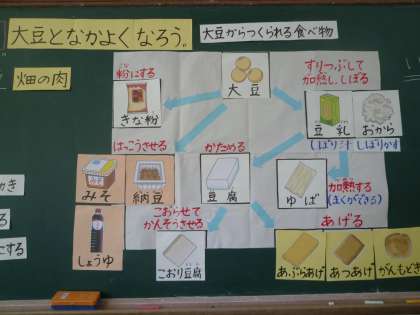 大豆となかよくなろう。
大豆からつくられる食べ物
畑の肉
粉にする
きな粉
大豆
すりつぶして
加熱し、しぼる
豆乳
おから
(しぼり汁)
(しぼりかす)
はっこうさせる
みそ
納豆
しょうゆ
かためる
豆腐
ゆば
加熱する
(まくができる)
こおらせて
かんそうさせる
こおり豆腐
あげる
あぶらあげ
あつあげ
がんもどき
にする